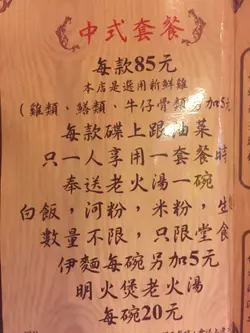 中式套餐
每款85元
本店是選用新鮮雞
(雞類、鱔類、牛仔骨類另加5元
每款碟上跟油菜
只一人享用一套餐時
奉送老火湯一碗
白飯，河粉，米粉，生
數量不限，只限堂食
伊麵每碗另加5元
明火煲老火湯
每碗20元